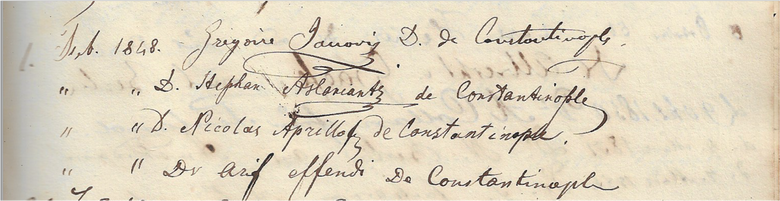 Feb. 1848. Gregoire Janovis D. de Constantinople.
" " D. Stephan Aslaniantz de Constantinople
" " D. Nicolas Aprilloff de Constantinople.
" " Dr Arif effendi De Constantinople